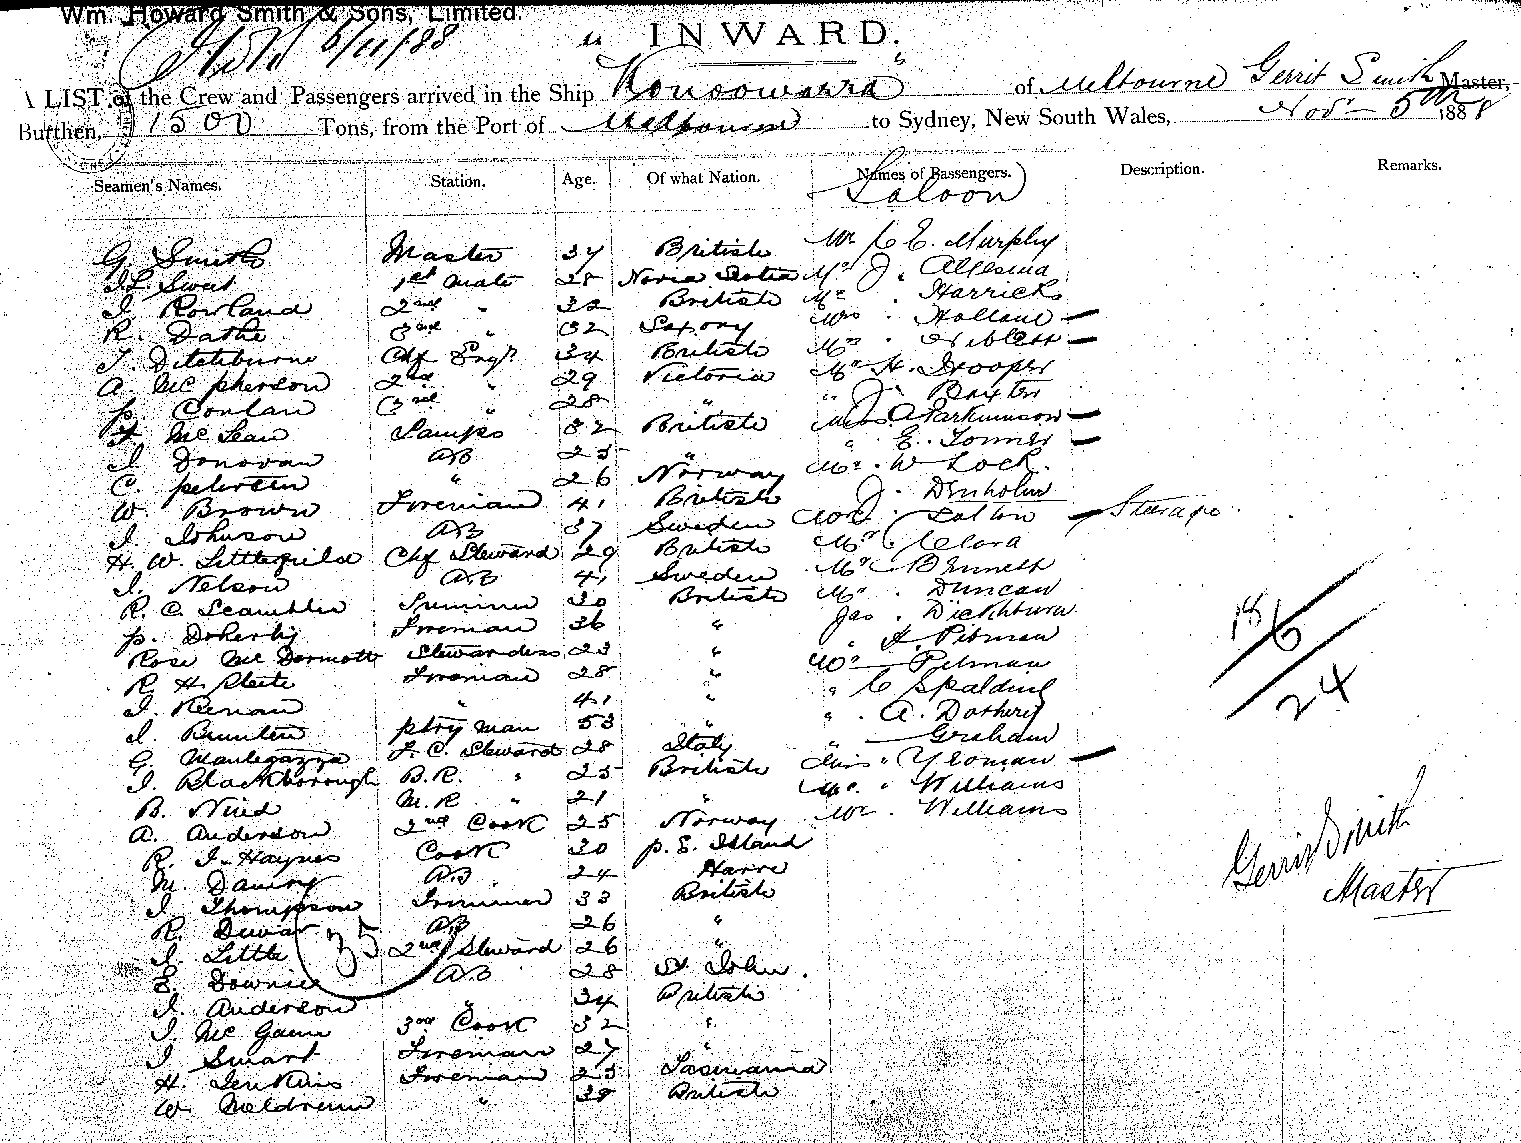 Wm. Howard Smith & Sons, Limited.
6/11/88
" INWARD. "
A LIST of the Crew and Passengers arrived in the Ship Konoowarra of Melbourne Gerrit Smith Master,
Burthen, 1500 Tons, from the Port of Melbourne to Sydney, New South Wales, Nov 5th 1888
Seamen's Names. Station. Age. Of what Nation. Names of Passengers. Description. Remarks.
Saloon
G. Smith Master 37 British Mr C E. Murphy
Swat 1st Mate 28 Nova Scotia Mr J.
I Rowland 2nd " 32 British Mr . Harricks
R. Dathe 3rd " 32 Saxony Mrs . Holland —
T. Ditchburne Chf Engr. 34 British Mr . Niblett —
A. McPherson 2nd " 29 Victoria Mr H. Drooper
P. Conlan 3rd " 28 " " J. Baxter
McLean Lamps 32 British J. A Parkinson —
I Donovan AB 25 " " E. Tonner —
C. Petersen " 26 Norway Mr. W Lock.
W. Brown Foreman 41 British J. Denholm
I. Johnson AB 37 Sweden — Steerage.
H. W. Littlefield Chf Steward 29 British Mr Clara
I. Nelson AB 41 Sweden Mr Bennett
R. C. Scambler Trimmer 30 British Mr . Duncan
P. Doherty Foreman 36 " Jas . Ditchburn
Rose McDermott Stewardess 23 " " A. Pitman
R. H. Foreman 28 " — Pitman
I. Keenan " 41 " " C Spalding
I. Brunten Ptry man 53 " " . A. Dothery
G. Mantegazza F. C. Steward 28 Italy " — Graham
I. Blackborough B.R. " 25 British Miss " Yeoman —
B. Nind M.R " 21 " . Williams
A. Anderson 2nd Cook 25 Norway Mr . Williams
R. I. Haynes Cook 30 P. E. Island
M. AB 24 Havre
I. Thompson Trimmer 33 British
R. Dewar AB 26 "
I. Little 2nd Steward 26 "
Downie AB 28 St. John.
I. Anderson " 34 British
I. McGann 3rd Cook 32 "
I Smart Foreman 27 "
H. Jenkins Foreman 25 Tasmania
W. Meldrum " 38 British
35
18
6
24
Gerrit Smith
Master